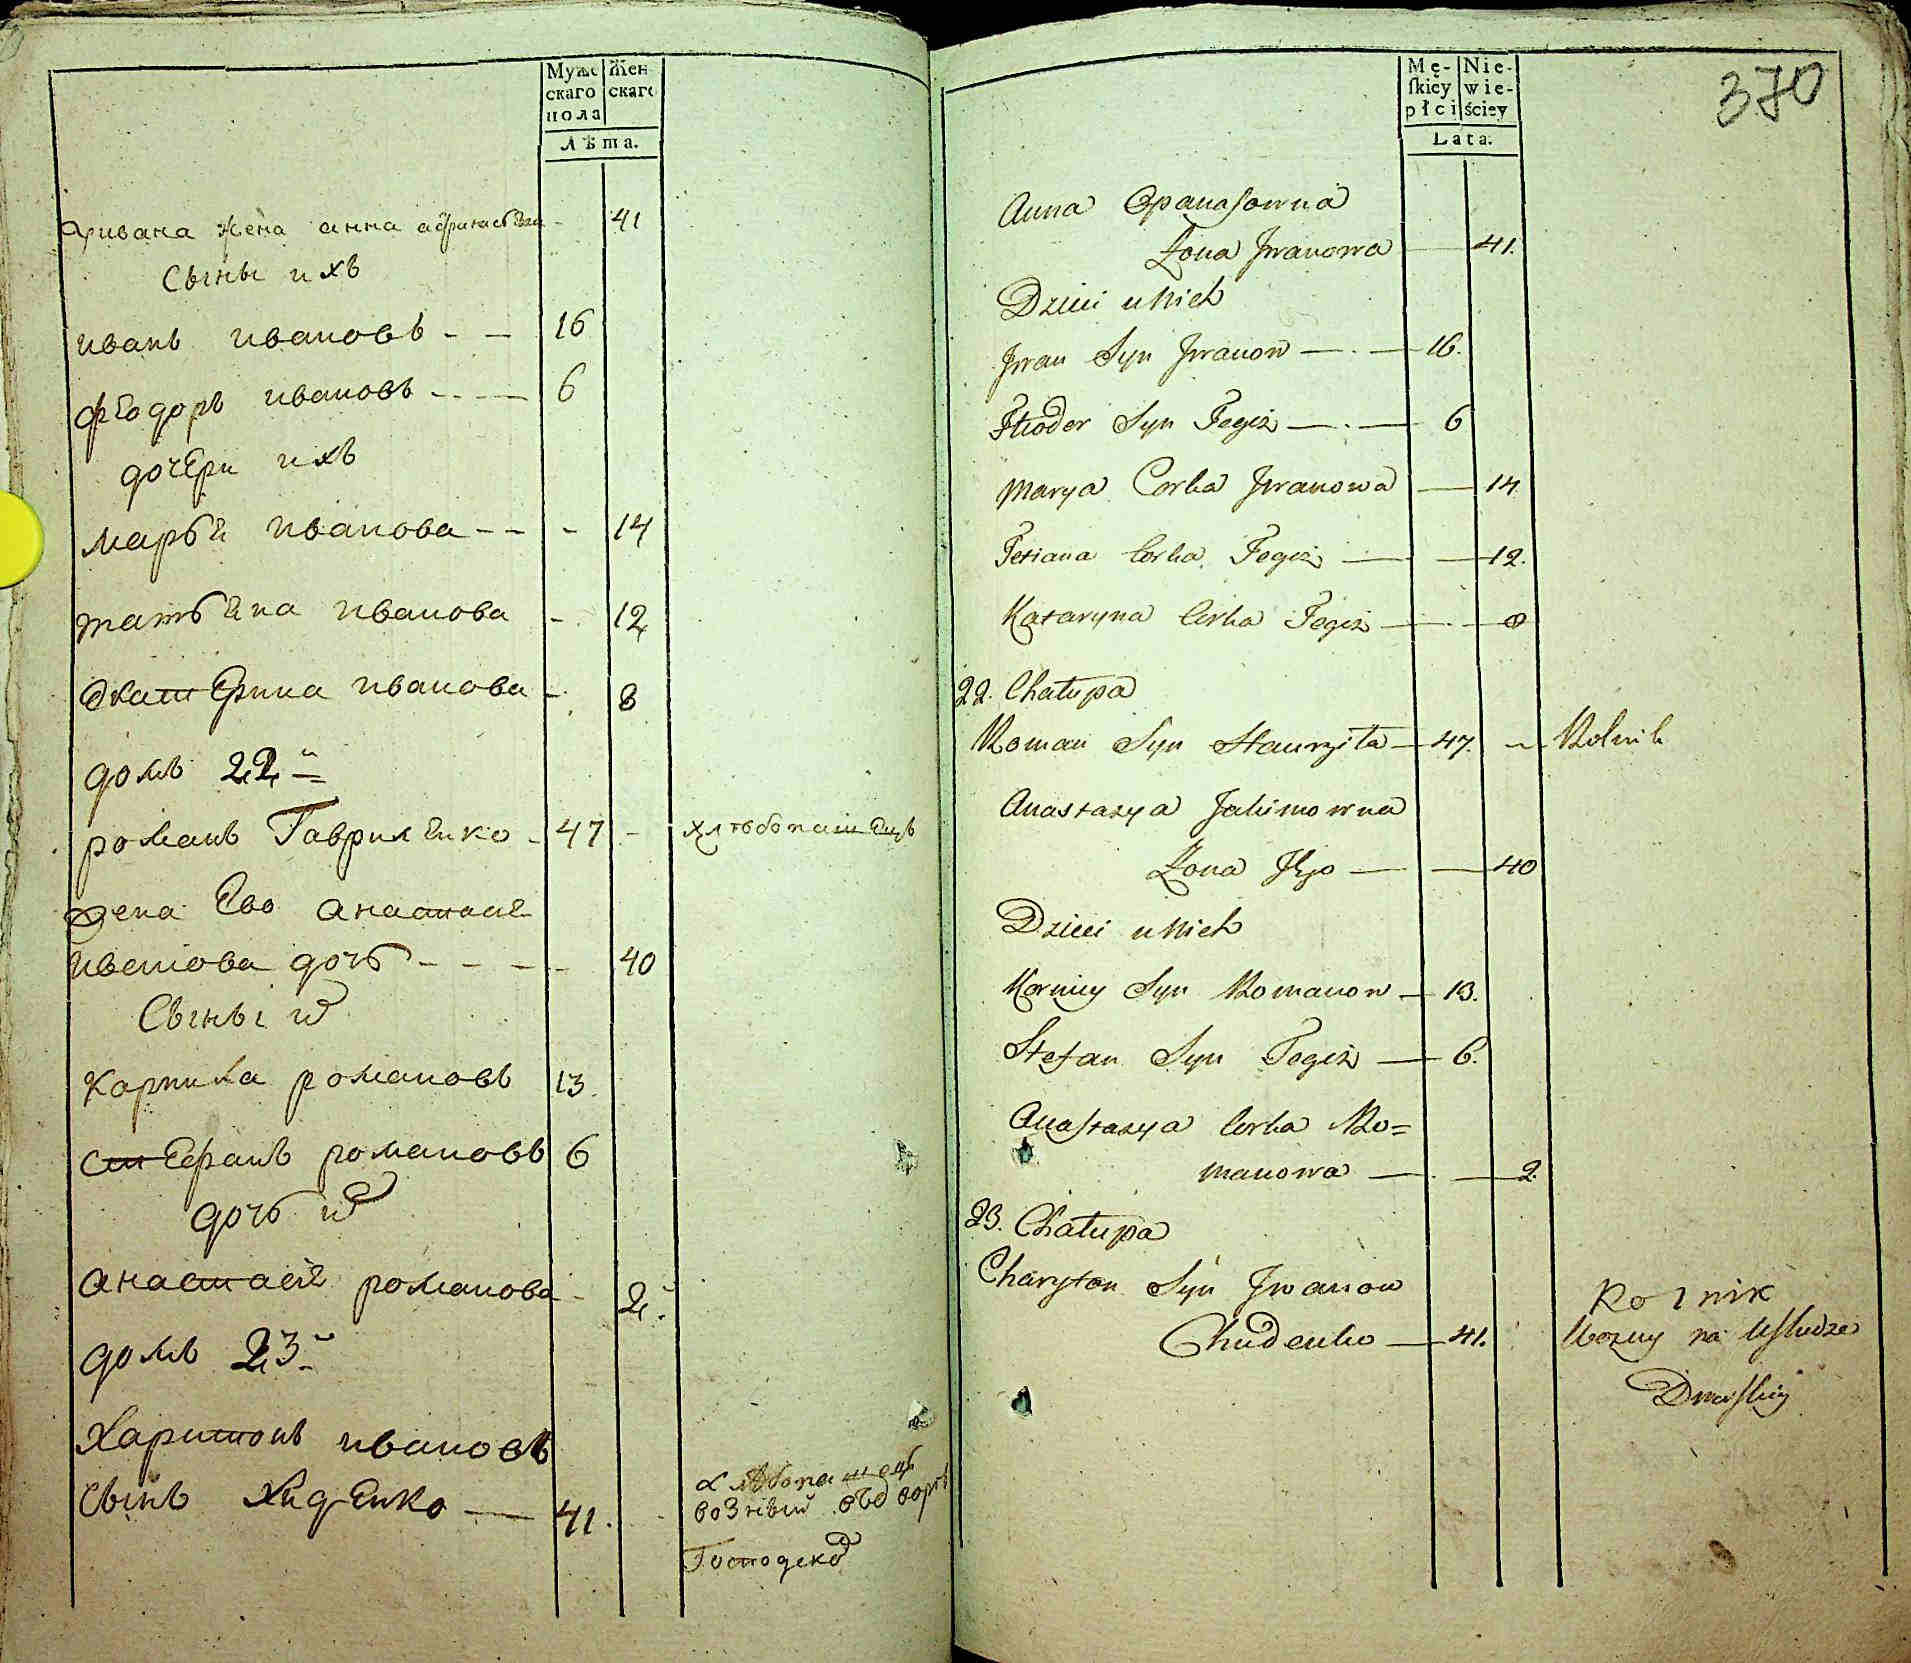 Муже
скаго
пола
Жен
скаго
Лѣта.
Ивана жена анна - 41
Сыны ихъ
иванъ ивановъ - - 16
феодоръ ивановъ - - - - 6
дочери ихъ
марья иванова - - - 14
татьяна иванова - 12
екатерина иванова - 8
домъ 22й
романъ Гавриленко - 47 - хлѣбопашецъ
жена Ево анастасия
дочь - - - - 40
Сыны их
карпика романовъ 13.
стефанъ романовъ 6
дочь их
анастасия романова - 2.
домъ 23й
Харитонъ ивановъ
сынъ Худенко — 41.
хлѣбопашецъ
возный
370
Mę-
skiey
płci
Nie-
wie-
ściey
Lata.
Anna Opanasowna
Żona Jwanowa — 41.
Dzieci u Nich
Jwan Syn Jwanow — . — 16.
Fheodor Syn Tegiż — . — 6
Marya Corka Jwanowa — 14
Tetiana Corka Tegiż — — 12.
Kataryna Corka Tegiż — . — 8
22. Chałupa
Roman Syn Hawryła — 47. — Rolnik
Anastazya Jakimowna
Żona Jego — — 40
Dzieci u Nich
Korniey Syn Romanow — 13.
Stefan Syn Tegiż — 6.
Anastazya Corka Ro=
manowa — . — 2.
23. Chałupa
Charyton Syn Jwanow
Chudenko — 41.
Rolnik
Wozny na Usłudze
Dworskiey